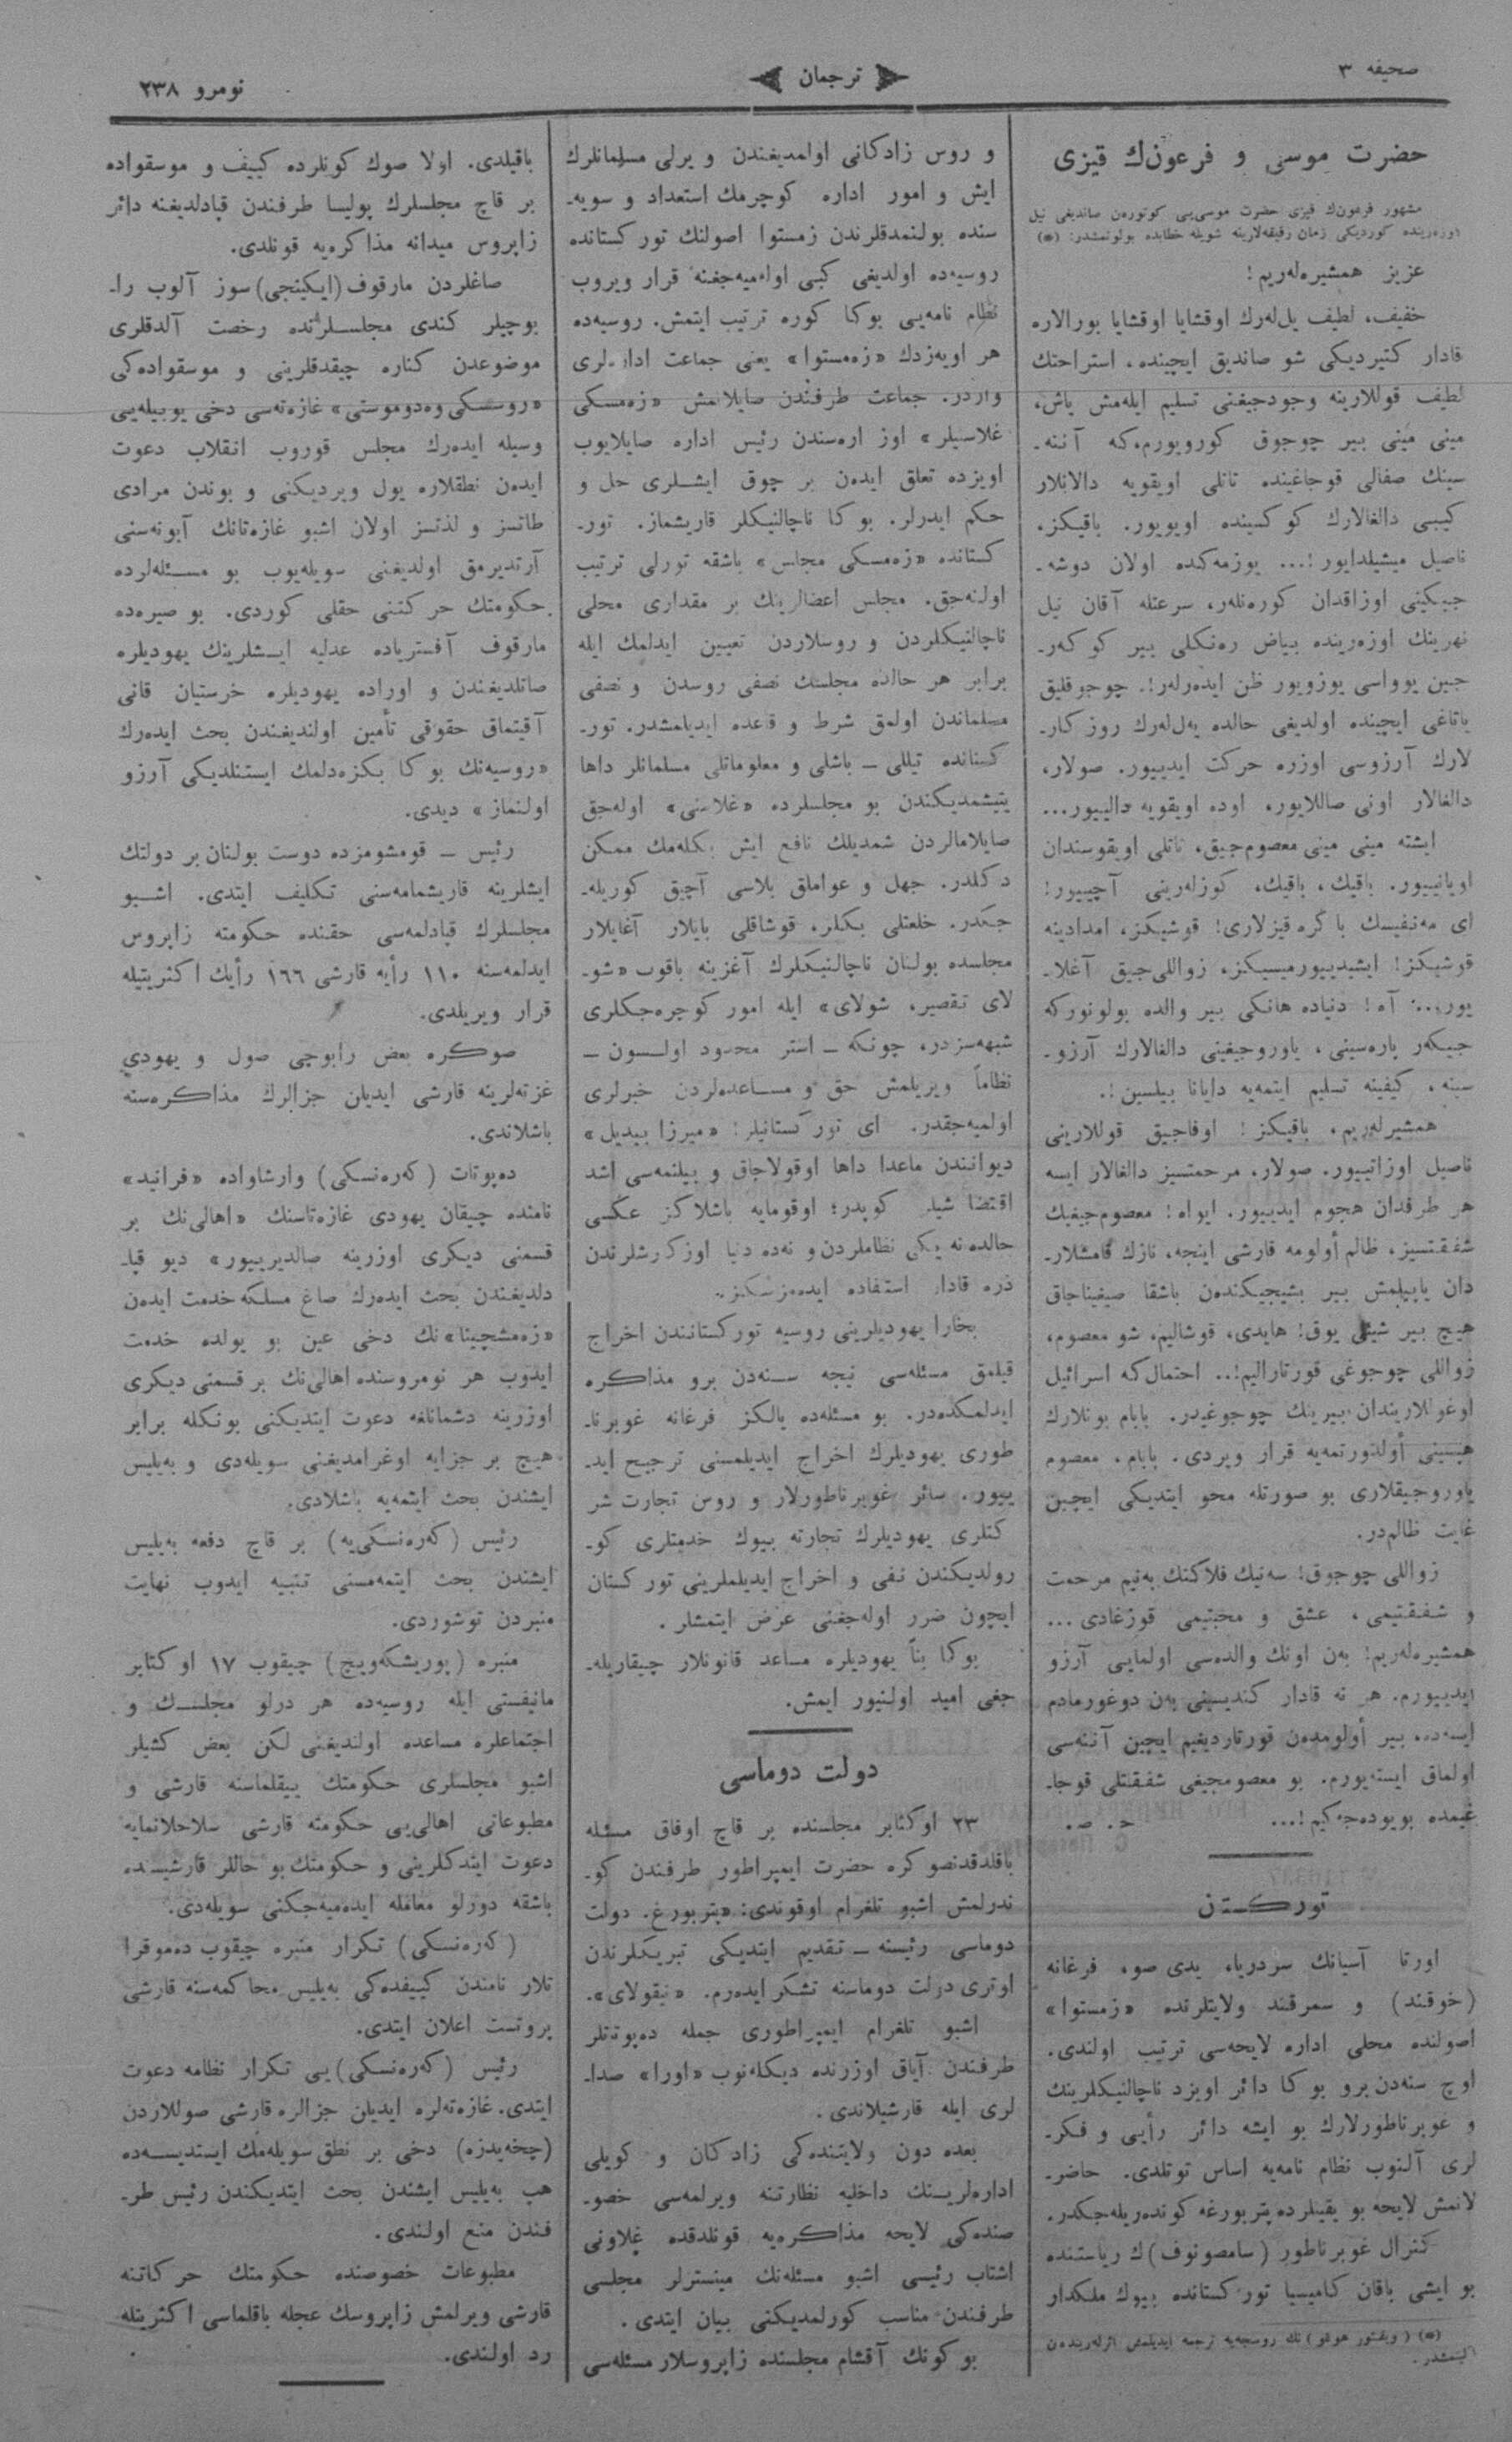 صحیفه ۳
ترجمان
نومرو ۲۳۸
حضرت موسی و فرعون‌ك قیزی
مشهور فرعون‌ك قیزی حضرت موسی‌یی كوتوره‌ن صاندیغی نیل
اوزه‌رینده كوردیكی زمان رفیقه‌لارینه شویله خطابده بولونمشدر: (*)
عزیز همشیره‌لەریم!
خفیف، لطیف یل‌لەرك اوقشایا اوقشایا بورالاره
قادار كتیردیكی شو صاندیق ایچینده، استراحتك
لطیف قوللارینه وجودجیغنی تسلیم ایله‌مش یاش،
مینی مینی بیر چوجوق كورویورم، كه آننه‌ـ
سینك صفالی قوجاغینده تاتلی اویقویه دالانلار
كیبی دالغالارك كوكسینده اویویور. باقیكز،
ناصیل میشیلدایور!... یوزمه‌كده اولان دوشه‌ـ
جیكینی اوزاقدان كوره‌نلەر، سرعتله آقان نیل
نهرینك اوزه‌رینده بیاض ره‌نكلی بیر كوكەرـ
جین یوواسی یوزویور ظن ایدەرلەر!. چوجوقلیق
یاتاغی ایچینده اولدیغی حالده یەل‌لەرك روزكارـ
لارك آرزوسی اوزره حركت ایدییور. صولار،
دالغالار اونی صاللایور، اوده اویقویه دالییور...
ایشته مینی مینی معصوم‌جیق، تاتلی اویقوسندان
اویانییور. باقیك، باقیك، كوزلەرینی آچییور!
ای مه‌نفیسك باكره قیزلاری! قوشیكز، امدادینه
قوشیكز! ایشیدییورمیسیكز، زواللی‌جیق آغلاـ
یور... آه! دنیاده هانكی بیر والده بولونوركه
جیكەر پاره‌سینی، یاوروجیغینی دالغالارك آرزوـ
سینه، كیفینه تسلیم ایتمەیه دایانا بیلسین!.
همشیرلەریم، باقیكز! اوفاجیق قوللارینی
ناصیل اوزاتییور. صولار، مرحمتسیز دالغالار ایسه
هر طرفدان هجوم ایدییور. ایواه! معصوم‌جیغك
شفقتسیز، ظالم أولومه قارشی اینجه، نازك قامشلارـ
دان یاپیلمش بیر بشیجیكندەن باشقا صیغیناجاق
هیچ بیر شیئی یوق! هایدی، قوشالیم، شو معصوم،
زواللی چوجوغی قورتارالیم!.. احتمال‌كه اسرائیل
اوغوللاریندان بیرینك چوجوغیدر. بابام بونلارك
هپسینی أولدورتمەیه قرار ویردی. بابام، معصوم
یاوروجیقلاری بو صورتله محو ایتدیكی ایچین
غایت ظالم‌در.
زواللی چوجوق! سەنیك فلاكتك بەنیم مرحمت
و شفقتیمی، عشق و محبتیمی قوزغادی...
همشیره‌لەریم! بەن اونك والده‌سی اولمایی آرزو
ایدییورم. هر نه قادار كندیسینی بەن دوغورمادم
ایسەده، بیر أولومدەن قورتاردیغیم ایچین آننەسی
اولماق ایسته‌یورم. بو معصومجیغی شفقتلی قوجاـ
غیمده بویوده‌جكیم!...
ح. ص.
توركستن
اورتا آسیانك سردریا، یدی صو، فرغانه
(خوقند) و سمرقند ولایتلرنده «زمستوا»
اصولنده محلی اداره لایحه‌سی ترتیب اولندی.
اوچ سنه‌دن برو بوكا دائر اویزد ناچالنیكلرینك
و غوبرناطورلارك بو ایشه دائر رأیی و فكرـ
لری آلنوب نظام نامه‌یه اساس توتلدی. حاضرـ
لانمش لایحه بو یقینلرده پتربورغه كونده‌ریله‌جكدر.
كنرال غوبرناطور (سامصونوف)ك ریاستنده
بو ایشی باقان كامیسیا توركستانده بیوك ملكدار
(*) (ویقتور هوغو) نك روسجه‌یه ترجمه ایدیلمش اثرلەریندەن
آلینمشدر.
و روس زادكانی اولمدیغندن و یرلی مسلمانلرك
ایش و امور اداره كوچرمك استعداد و سویه‌ـ
سنده بولنمدقلرندن زمستوا اصولنك توركستانده
روسیه‌ده اولدیغی كبی اولمیه‌جغنه قرار ویروب
نظام نامه‌یی بوكا كوره ترتیب ایتمش. روسیه‌ده
هر اویه‌زدك «زەمستوا» یعنی جماعت اداره‌لری
واردر. جماعت طرفندن صایلانمش «زەمسكی
غلاسنیلر» اوز اره‌سندن رئیس اداره صایلایوب
اویزده تعلق ایدەن بر چوق ایشلری حل و
حكم ایدرلر. بوكا ناچالنیكلر قاریشماز. تورـ
كستانده «زەمسكی مجلس» باشقه تورلی ترتیب
اولنه‌جق. مجلس اعضالرینك بر مقداری محلی
ناچالنیكلردن و روسلاردن تعیین ایدلمك ایله
برابر هر حالده مجلسك نصفی روسدن و نصفی
مسلماندن اولمق شرط و قاعده ایدیلمشدر. تورـ
كستانده تیللی ـ باشلی و معلوماتلی مسلمانلر داها
یتیشمدیكندن بو مجلسلرده «غلاسنی» اوله‌جق
صایلامالردن شمدیلك نافع ایش بكله‌مك ممكن
دكلدر. جهل و عواملق بلاسی آچیق كوریله‌ـ
جكدر. خلعتلی بكلر، قوشاقلی بایلار آغایلار
مجلسده بولنان ناچالنیكلرك آغزینه باقوب «شوـ
لای تقصیر، شولای» ایله امور كوچره‌جكلری
شبهه‌سزدر، چونكه ـ استر محدود اولسون ـ
نظاماً ویریلمش حق و مساعده‌لردن خبرلری
اولمیه‌جقدر. ای توركستانیلر! «میرزا بیدیل»
دیوانندن ماعدا داها اوقولاجاق و بیلنمه‌سی اشد
اقتضا شیلر كوپدر؛ اوقومایه باشلاكز عكسی
حالده نه یكی نظاملردن و نه‌ده دنیا اوزكرشلرندن
ذره قادار استفاده ایده‌مزسكز.
بخارا یهودیلرینی روسیه توركستانندن اخراج
قیلمق مسئله‌سی نیجه سنه‌دن برو مذاكره
ایدلمكده‌در. بو مسئله‌ده یالكز فرغانه غوبرناـ
طوری یهودیلرك اخراج ایدیلمسنی ترجیح ایدـ
ییور. سائر غوبرناطورلار و روس تجارت شر
كتلری یهودیلرك تجارته بیوك خدمتلری كوـ
رولدیكندن نفی و اخراج ایدیلملرینی توركستان
ایچون ضرر اوله‌جغنی عرض ایتمشلر.
بوكا بناً یهودیلره مساعد قانونلار چیقاریله‌ـ
جغی امید اولنیور ایمش.
دولت دوماسی
۲۳ اوكتابر مجلسنده بر قاچ اوفاق مسئله
باقلدقدنصوكره حضرت ایمپراطور طرفندن كوـ
ندرلمش اشبو تلغرام اوقوندی: «پتربورغ. دولت
دوماسی رئیسنه ـ تقدیم ایتدیكی تبریكلرندن
اوتری دولت دوماسنه تشكر ایده‌رم. «نیقولای».
اشبو تلغرام ایمپراطوری جمله ده‌پوتاتلر
طرفندن آیاق اوزرنده دیكله‌نوب «اورا» صداـ
لری ایله قارشیلاندی.
بعده دون ولایتنده‌كی زادكان و كویلی
اداره‌لرینك داخلیه نظارتنه ویرلمه‌سی خصوـ
صنده‌كی لایحه مذاكره‌یه قونلدقده غلاونی
اشتاب رئیسی اشبو مسئله‌نك مینسترلر مجلسی
طرفندن مناسب كورلمدیكنی بیان ایتدی.
بو كونك آقشام مجلسنده زاپروسلار مسئله‌سی
باقیلدی. اولا صوك كونلرده كییف و موسقواده
بر قاچ مجلسلرك پولیسا طرفندن قپادلدیغنه دائر
زاپروس میدانه مذاكره‌یه قونلدی.
صاغلردن مارقوف (ایكینجی) سوز آلوب راـ
بوچیلر كندی مجلسلرنده رخصت آلدقلری
موضوعدن كناره چیقدقلرینی و موسقواده‌كی
«روسسكی وەدوموستی» غازه‌ته‌سی دخی یوبیله‌یی
وسیله ایده‌رك مجلس قوروب انقلاب دعوت
ایدەن نطقلاره یول ویردیكنی و بوندن مرادی
طاتسز و لذتسز اولان اشبو غازه‌تانك آبونه‌سنی
آرتدیرمق اولدیغنی سویله‌یوب بو مسئله‌لرده
حكومتك حركتنی حقلی كوردی. بو صیره‌ده
مارقوف آفستریاده عدلیه ایشلرینك یهودیلره
صاتلدیغندن و اوراده یهودیلره خرستیان قانی
آقیتماق حقوقی تأمین اولندیغندن بحث ایده‌رك
«روسیه‌نك بوكا بكزه‌دلمك ایستنلدیكی آرزو
اولنماز» دیدی.
رئیس ـ قومشومزده دوست بولنان بر دولتك
ایشلرینه قاریشمامه‌سنی تكلیف ایتدی. اشبو
مجلسلرك قپادلمه‌سی حقنده حكومته زاپروس
ایدلمه‌سنه ۱۱۰ رأیه قارشی ۱۶۶ رأیك اكثریتیله
قرار ویریلدی.
صوكره بعض رابوچی صول و یهودی
غزته‌لرینه قارشی ایدیلن جزالرك مذاكره‌سنه
باشلاندی.
ده‌پوتات (كەره‌نسكی) وارشاواده «فرایند»
نامنده چیقان یهودی غازه‌تاسنك «اهالی‌نك بر
قسمنی دیكری اوزرینه صالدیرییور» دیو قپاـ
دلدیغندن بحث ایده‌رك صاغ مسلكه خدمت ایدەن
«زەمشچینا»نك دخی عین بو یولده خدمت
ایدوب هر نومروسنده اهالی‌نك بر قسمنی دیكری
اوزرینه دشمانلغه دعوت ایتدیكنی بونكله برابر
هیچ بر جزایه اوغرامدیغنی سویله‌دی و بەیلیس
ایشندن بحث ایتمه‌یه باشلادی.
رئیس (كەره‌نسكی‌یه) بر قاچ دفعه بەیلیس
ایشندن بحث ایتمه‌مسنی تنبیه ایدوب نهایت
منبردن توشوردی.
منبره (پوریشكەویچ) چیقوب ۱۷ اوكتابر
مانیفستی ایله روسیه‌ده هر درلو مجلسك و
اجتماعلره مساعده اولندیغنی لكن بعض كشیلر
اشبو مجلسلری حكومتك ییقلماسنه قارشی و
مطبوعاتی اهالی‌یی حكومته قارشی سلاحلانمایه
دعوت ایتدكلرینی و حكومتك بو حاللر قارشیسنده
باشقه دورلو معامله ایده‌میه‌جكنی سویله‌دی.
(كەره‌نسكی) تكرار منبره چیقوب ده‌موقرا
تلار نامندن كییفده‌كی بەیلیس محاكمه‌سنه قارشی
پروتست اعلان ایتدی.
رئیس (كەره‌نسكی)یی تكرار نظامه دعوت
ایتدی. غازه‌ته‌لره ایدیلن جزالره قارشی صوللاردن
(چخه‌یدزه) دخی بر نطق سویله‌مك ایستدیسه‌ده
هپ بەیلیس ایشندن بحث ایتدیكندن رئیس طرـ
فندن منع اولندی.
مطبوعات خصوصنده حكومتك حركاتنه
قارشی ویرلمش زاپروسك عجله باقلماسی اكثریتله
رد اولندی.